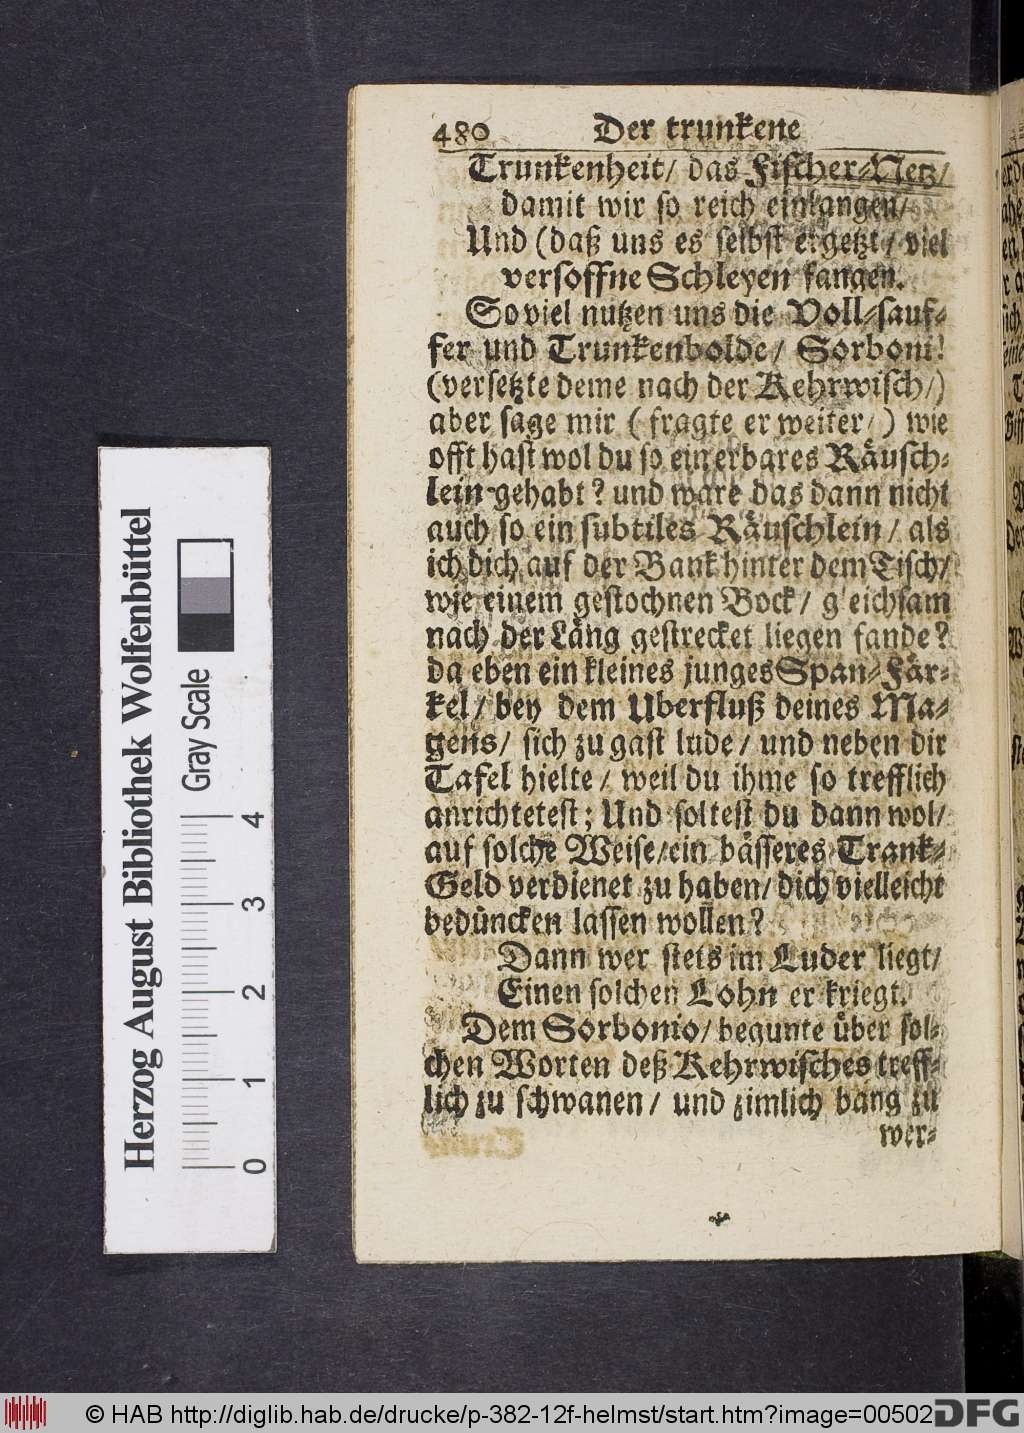 480 Der trunkene
Trunkenheit/ das Fischer-Netz/
damit wir so reich einlangen/
Und (daß uns es selbst ergetzt/ viel
versoffne Schleyen fangen.
So viel nutzen uns die Voll-sauf-
fer und Trunkenbolde/ Sorboni!
(versetzte deme nach der Kehrwisch/)
aber sage mir (fragte er weiter/) wie
offt hast wol du so ein erbares Räusch-
lein gehabt? und ware das dann nicht
auch so ein subtiles Räuschlein/ als
ich dich auf der Bank hinter dem Tisch/
wie einem gestochnen Bock/ gleichsam
nach der Läng gestrecket liegen fande?
da eben ein kleines junges Span-Fär-
kel/ bey dem Uberfluß deines Ma-
gens/ sich zu gast lude/ und neben dir
Tafel hielte/ weil du ihme so trefflich
anrichtetest; Und soltest du dann wol/
auf solche Weise/ein bässeres Trank-
Geld verdienet zu haben/ dich vielleicht
bedüncken lassen wollen?
Dann wer stets im Luder liegt/
Einen solchen Lohn er kriegt.
Dem Sorbonio/ begunte über sol-
chen Worten deß Kehrwisches treff-
lich zu schwanen/ und zimlich bang zu
wer-
Herzog August Bibliothek Wolfenbüttel
Gray Scale
0 1 2 3 4
© HAB http://diglib.hab.de/drucke/p-382-12f-helmst/start.htm?image=00502
DFG